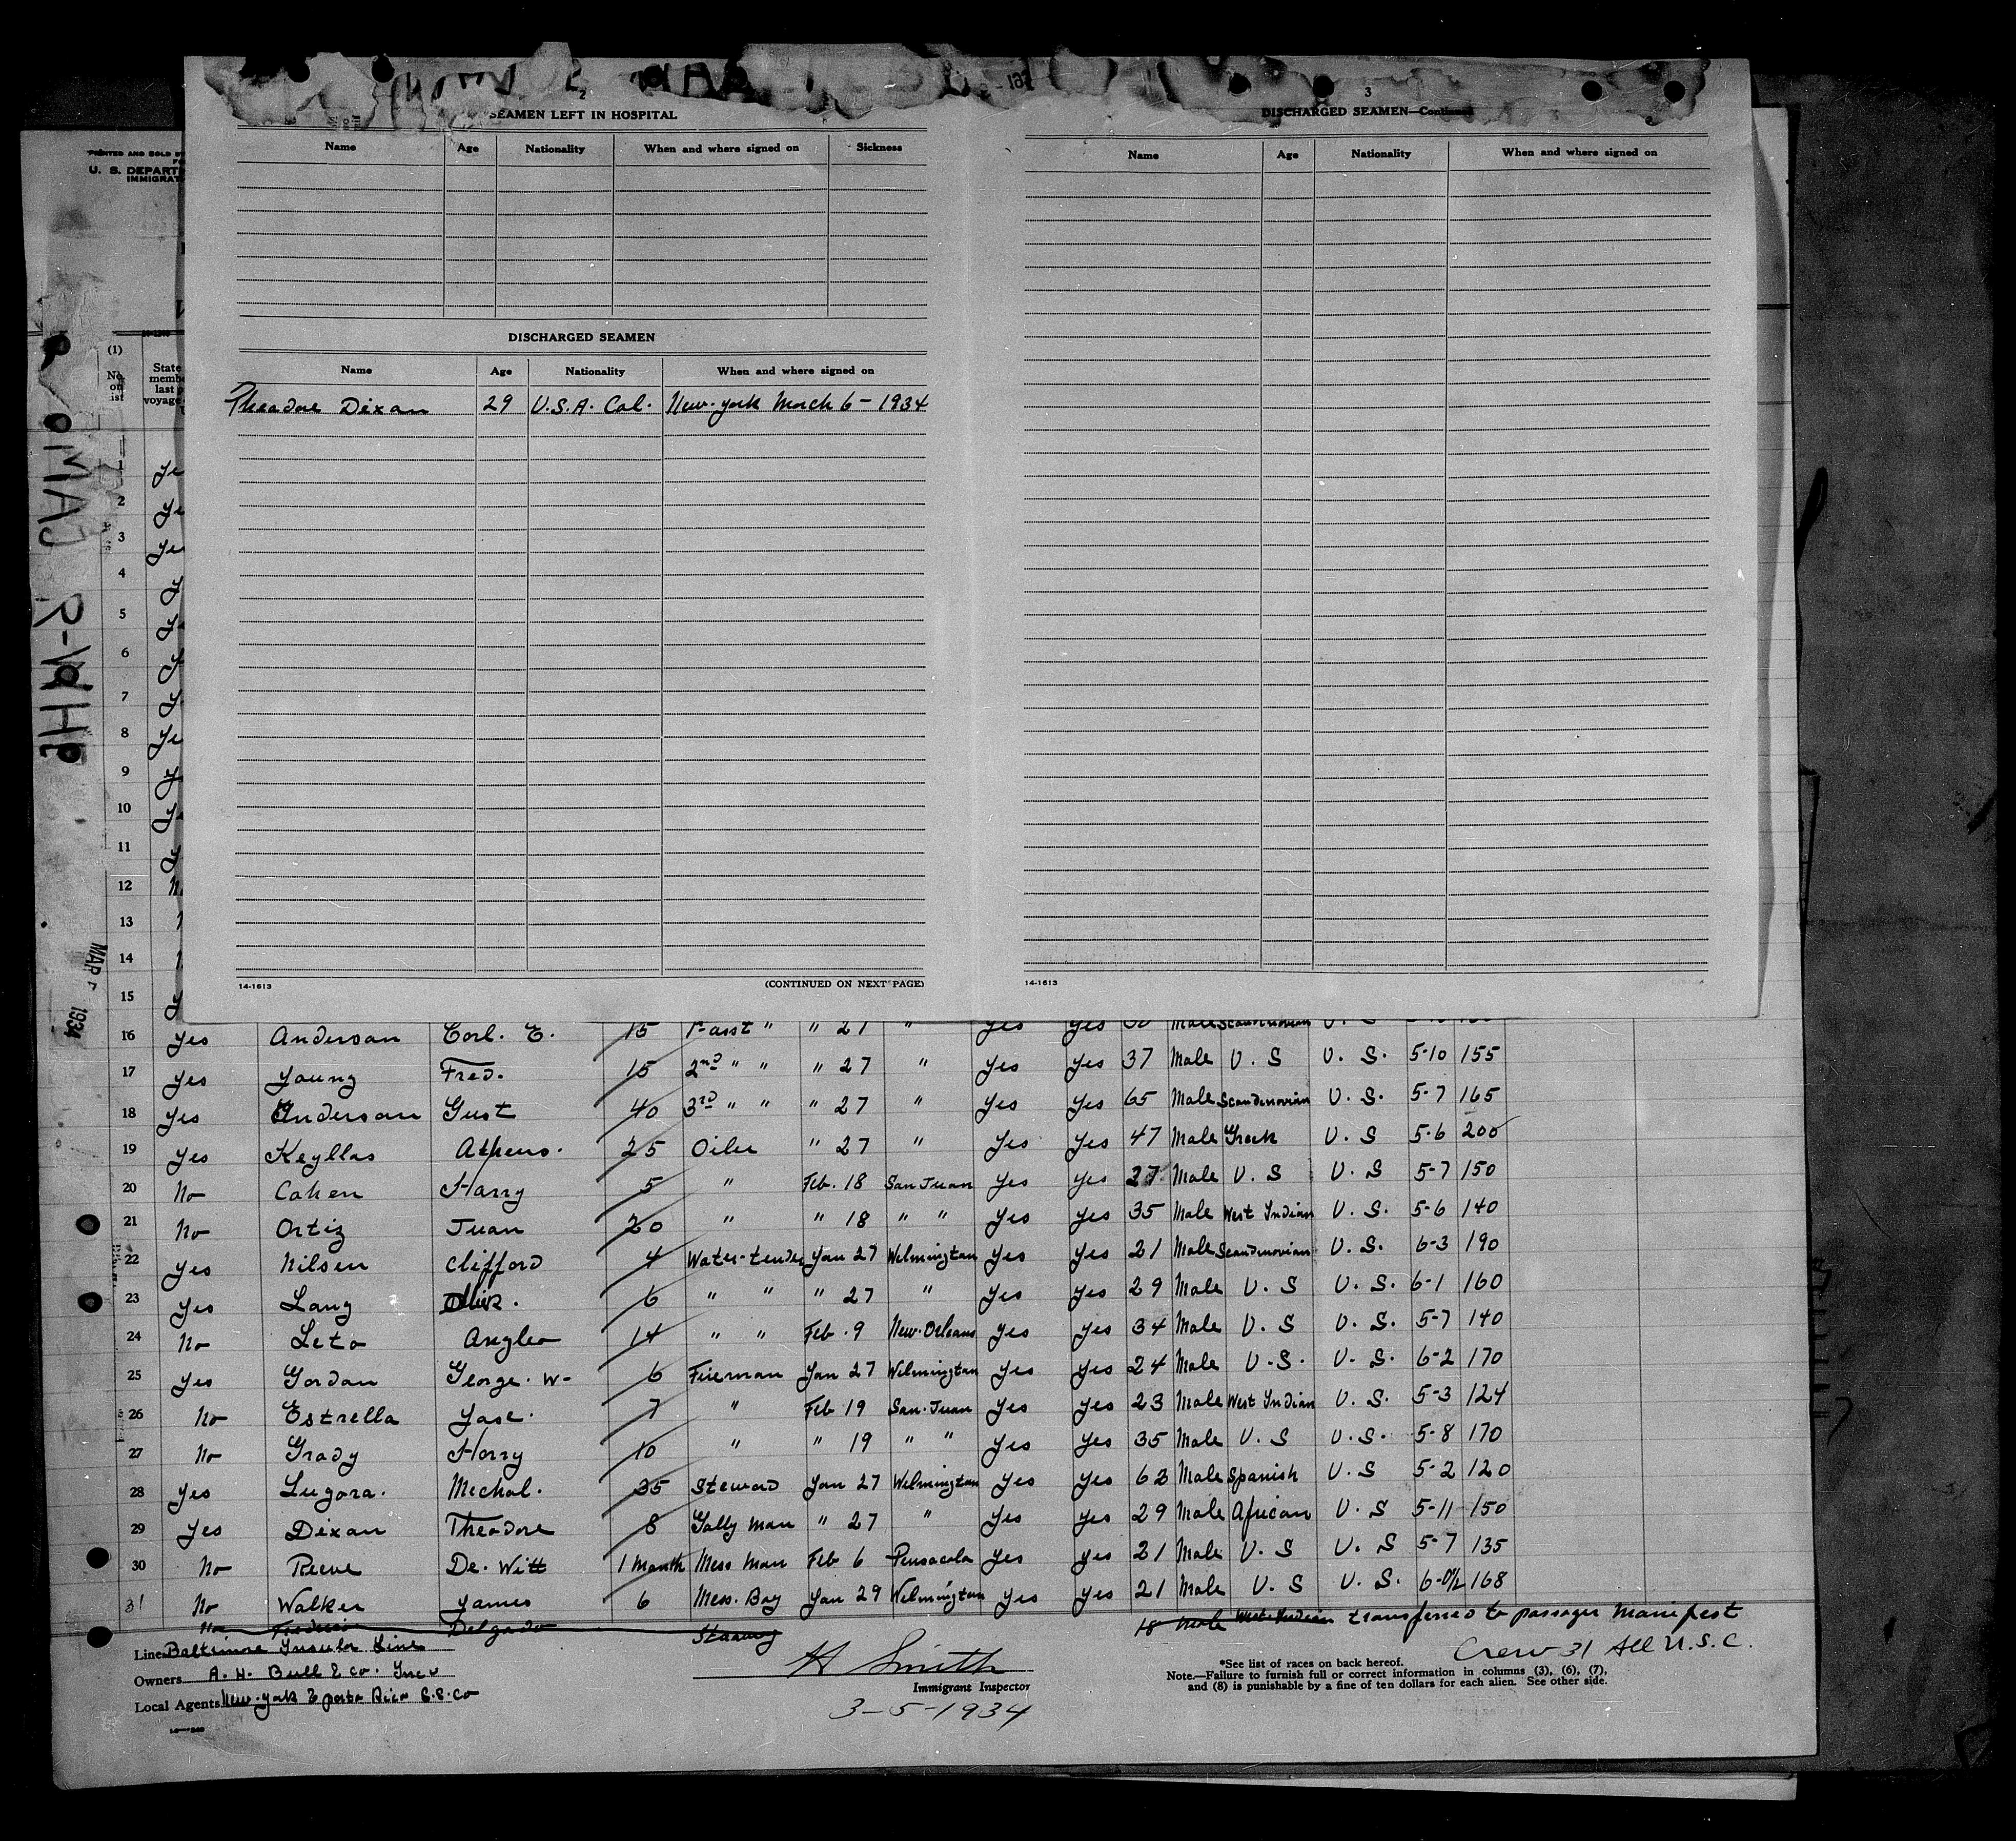 2
SEAMEN LEFT IN HOSPITAL
Name Age Nationality When and where signed on Sickness
DISCHARGED SEAMEN
Name Age Nationality When and where signed on
Theadore Dixan 29 U.S.A. Col. New-york March 6 - 1934
14-1613 (CONTINUED ON NEXT PAGE)
3
DISCHARGED SEAMEN—Continued
Name Age Nationality When and where signed on
14-1613
PRINTED AND SOLD BY
U. S. DEPART
IMMIGRAT
(1)
No. on list
State
membe
last p
voyage
1 Ye
2 Ye
3 Ye
4 Y
5 Y
6 Y
7 Y
8 Ye
9 Y
10 Ye
11 Y
12 N
13
14
15 Y
MAR 1934
16 Yes Anderson Carl. E. 15 1-asst " " 27 " Yes Yes Male Scandinavian U. S
17 Yes Young Fred. 15 2nd " " " 27 " Yes Yes 37 Male U. S U. S. 5-10 155
18 Yes Anderson Gust 40 3rd " " " 27 " Yes Yes 65 Male Scandinavian U. S. 5-7 165
19 Yes Keyllas Athens. 25 Oiler " 27 " Yes Yes 47 Male Greek U. S 5-6 200
20 No Cohen Harry 5 " Feb. 18 San Juan Yes Yes 27 Male U. S U. S 5-7 150
21 No Ortiz Juan 20 " " 18 " " Yes Yes 35 Male West Indian U. S. 5-6 140
22 Yes Nilsen Clifford 4 Water-tender Jan 27 Wilmington Yes Yes 21 Male Scandinavian U. S. 6-3 190
23 Yes Lang 6 " " " 27 " Yes Yes 29 Male U. S U. S. 6-1 160
24 No Leto Angleo 14 " " Feb. 9 New-Orleans Yes Yes 34 Male U. S U. S. 5-7 140
25 Yes Gordan George. W- 6 Fireman Jan 27 Wilmington Yes Yes 24 Male U.S. U. S. 6-2 170
26 No Estrella Jose. 7 " Feb 19 San-Juan Yes Yes 23 Male West Indian U. S. 5-3 124
27 No Grady Harry 10 " " 19 " " Yes Yes 35 Male U. S U.S. 5-8 170
28 Yes Lugora. Mechal. 35 Steward Jan 27 Wilmington Yes Yes 63 Male Spanish U.S 5-2 120
29 Yes Dixan Theadore 8 Gally Man " 27 " Yes Yes 29 Male African U. S 5-11 150
30 No Reeve De. Witt 1 Month Mess Man Feb 6 Pensacola Yes Yes 21 Male U. S U. S 5-7 135
31 No Walker James 6 Mess. Boy Jan 29 Wilmington Yes Yes 21 Male U. S U. S. 6-0½ 168
No Federico Delgado 18 Male West Indian transferred to passager Manifest
Crew 31 All U.S.C.
Line Baltimore Insular Line
Owners A. H. Bull & Co. Inc
Local Agents New-york & porto Rico S.S. Co
H Smith
Immigrant Inspector
3-5-1934
*See list of races on back hereof.
Note.—Failure to furnish full or correct information in columns (3), (6), (7),
and (8) is punishable by a fine of ten dollars for each alien. See other side.